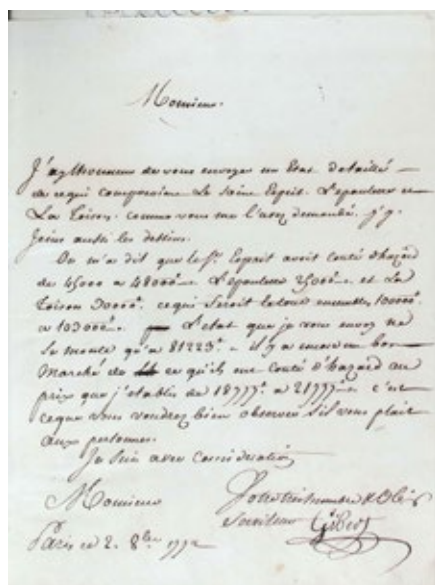 Monsieur.
J'ay l'honneur de vous envoyer un Etat detaillé
de ce qui compose le Saint Esprit. L'epaulette et
La Toison. comme vous me l'avez demandé. j'y
Joins aussi les dessins.
On m'a dit que le St. Esprit avoit couté d'hazard
de 45000 a 48000ᵗ. L'epaulette 25000ᵗ. et La
Toison 30000ᵗ. ce qui seroit le tout ensemble, 100000ᵗ
a 103000ᵗ. L'etat que je vous envoy ne
Se monte qu'a 81223ᵗ. il y a encore un bon
Marché de ce qu'ils ont couté d'hazard au
prix que j'etablis de 18777ᵗ. a 21777ᵗ. c'est
ce que vous voudrez bien observer s'il vous plait
aux personnes.
Je Suis avec Consideration
Monsieur
Votre tres humble & Obeis
Serviteur
Paris ce 2. 8bre 1792